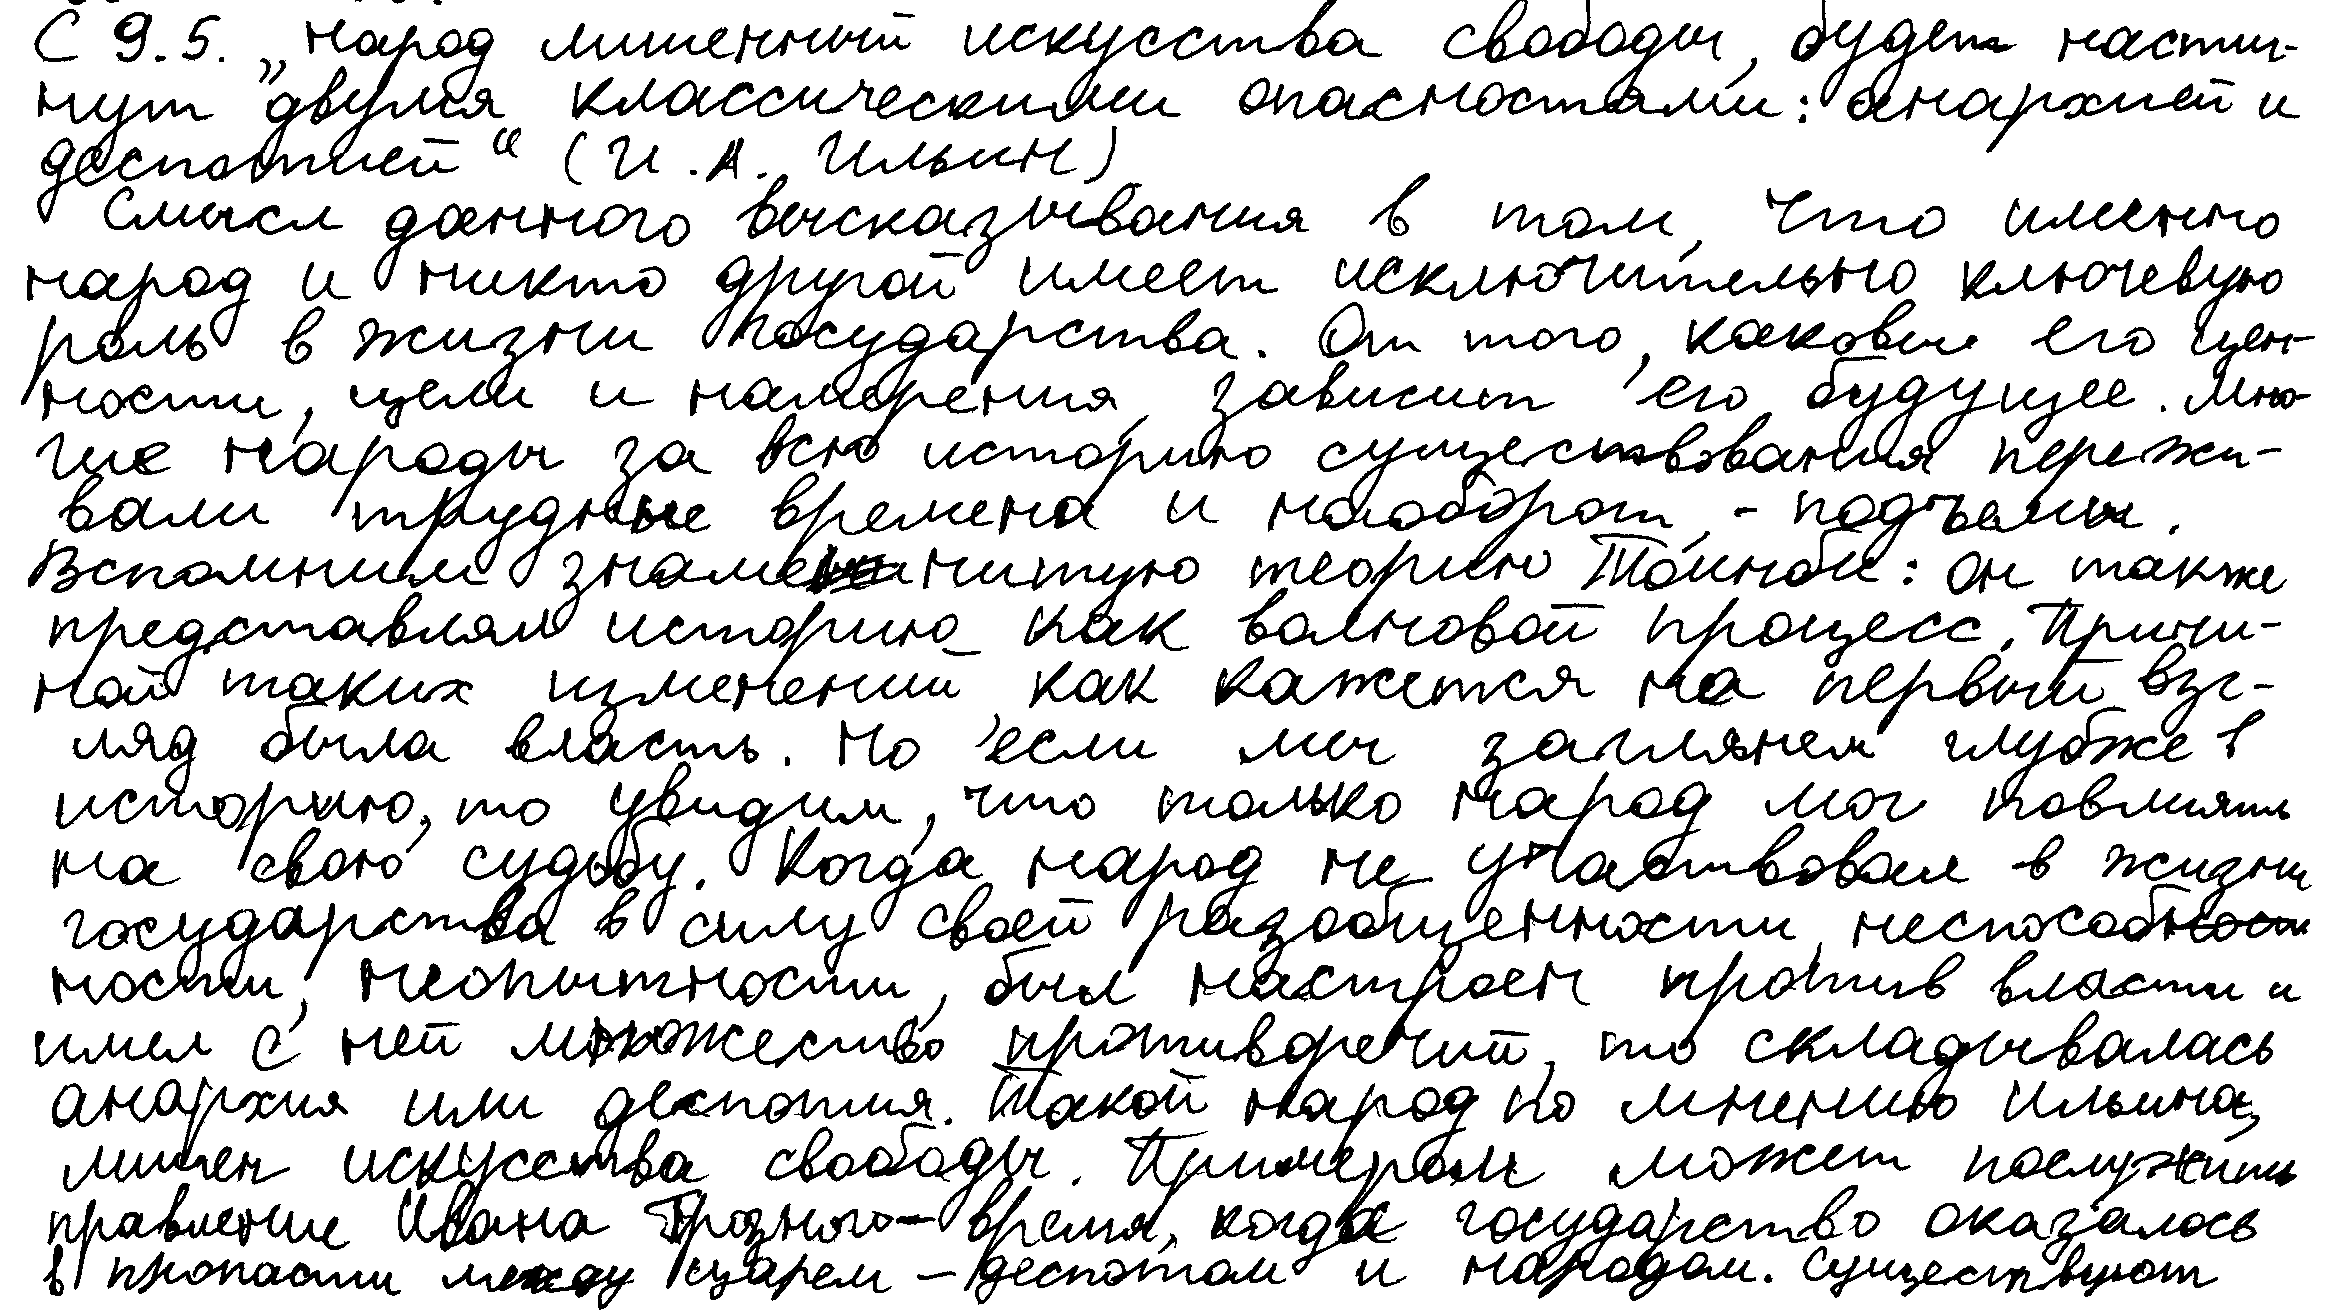 С 9.5. „Народ лишенный искусства свободы, будет настиг-
нут двумя классическими опасностями: анархией и
деспотией“ (И.А. Ильин)
Смысл данного высказывания в том, что именно
народ и никто другой имеет исключительно ключевую
роль в жизни государства. От того, каковы его цен-
ности, цели и намерения, зависит его будущее. Мно-
гие народы за всю историю существования пережи-
вали трудные времена и наоборот, - подъемы.
Вспомним знаменитую теорию Тоинби: он также
представлял историю как волновой процесс. Причи-
ной таких изменений как кажется на первый взг-
ляд была власть. Но если мы заглянем глубже в
историю, то увидим, что только народ мог повлиять
на свою судьбу. Когда народ не участвовал в жизни
государства в силу своей разобщенности, неспособ
ности, неопытности, был настроен против власти и
имел с ней множество противоречий, то складывалась
анархия или деспотия. Такой народ по мнению Ильина,
лишен искусства свободы. Примером может послужить
правление Ивана Грозного – время, когда государство оказалось
в пропасти между царем – деспотом и народом. Существуют